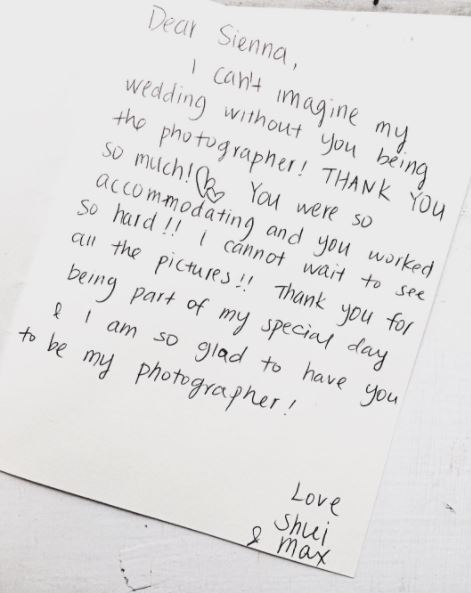 Dear Sienna,
I can't imagine my
wedding without you being
the photographer! THANK YOU
so much! You were so
accommodating and you worked
so hard!! I cannot wait to see
all the pictures!! Thank you for
being part of my special day
& I am so glad to have you
to be my photographer!
Love
Shui
& Max